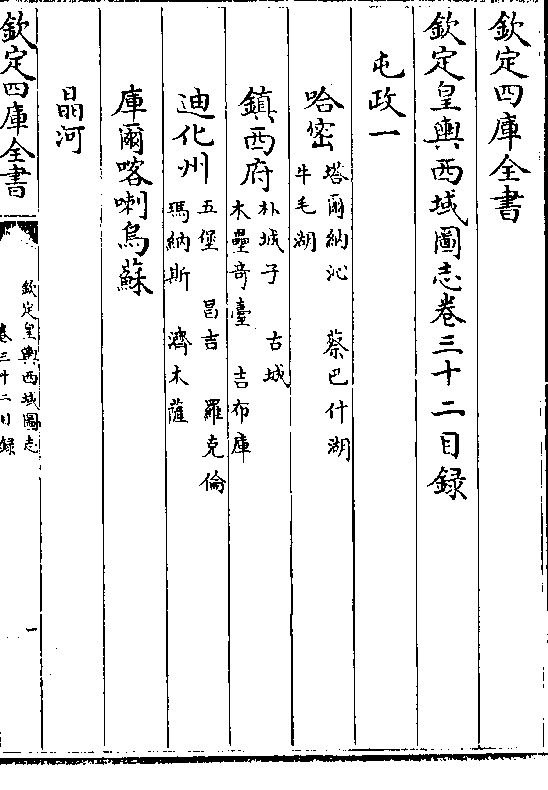 欽定四庫全書
欽定皇輿西域圖志卷三十二目録
屯政一
哈密
塔爾納沁 蔡巴什湖
牛毛湖
鎮西府
朴城子 古城
木壘竒臺 吉布庫
迪化州
五堡 昌吉 羅克倫
瑪納斯 濟木薩
庫爾喀喇烏蘇
晶河
欽定四庫全書
欽定皇輿西域圖志
卷三十二目録
一